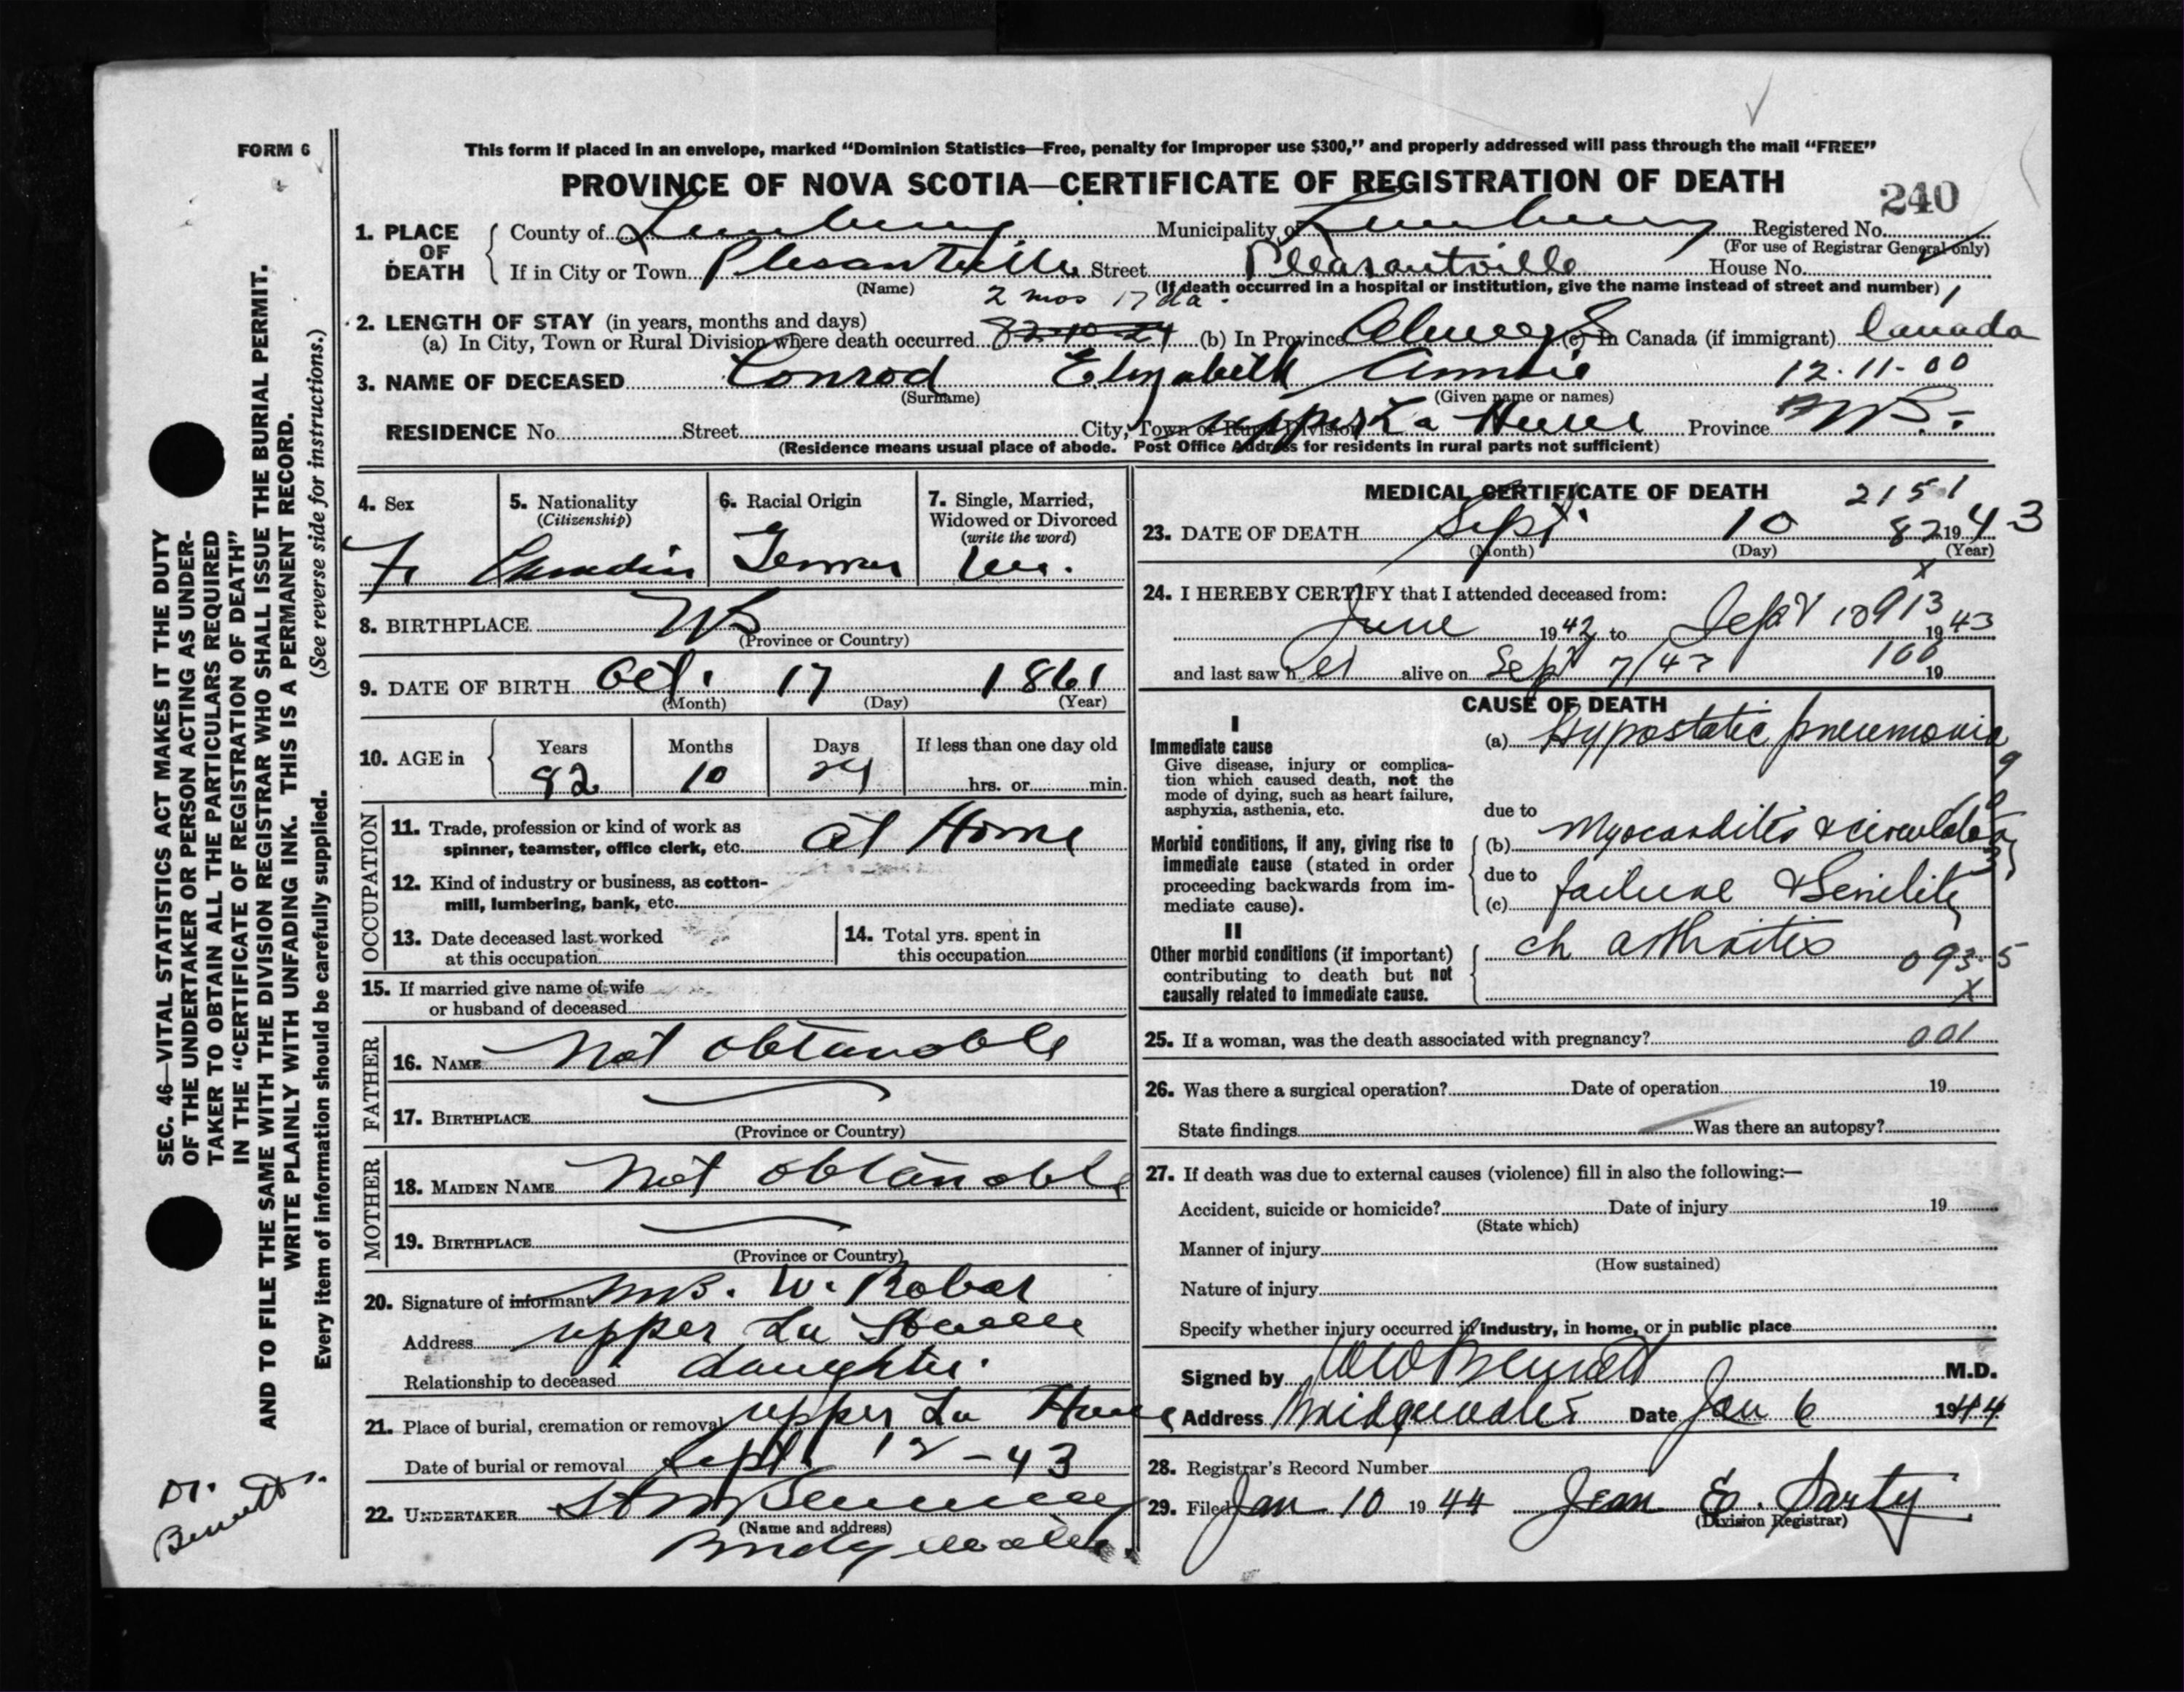 FORM 6
This form if placed in an envelope, marked “Dominion Statistics—Free, penalty for improper use $300,” and properly addressed will pass through the mail “FREE”
PROVINCE OF NOVA SCOTIA—CERTIFICATE OF REGISTRATION OF DEATH
240
1. PLACE OF DEATH
County of Lunenburg Municipality of Lunenburg Registered No.
(For use of Registrar General only)
If in City or Town Plesantville Street Pleasantville House No.
(Name) (If death occurred in a hospital or institution, give the name instead of street and number)
2 mos 17 da.
2. LENGTH OF STAY (in years, months and days)
(a) In City, Town or Rural Division where death occurred 82-10-24 (b) In Province Always (c) In Canada (if immigrant) Canada
3. NAME OF DECEASED Conrod Elizabeth Annie 12-11-00
(Surname) (Given name or names)
RESIDENCE No. Street City, Town or Rural Division Upper La Have Province NS.
(Residence means usual place of abode. Post Office Address for residents in rural parts not sufficient)
4. Sex
F.
5. Nationality
(Citizenship)
Canadian
6. Racial Origin
German
7. Single, Married,
Widowed or Divorced
(write the word)
8. BIRTHPLACE NS
(Province or Country)
9. DATE OF BIRTH Oct. 17 1861
(Month) (Day) (Year)
10. AGE in
Years 82
Months 10
Days 24
If less than one day old
hrs. or min.
OCCUPATION
11. Trade, profession or kind of work as
spinner, teamster, office clerk, etc. At Home
12. Kind of industry or business, as cotton-
mill, lumbering, bank, etc.
13. Date deceased last worked
at this occupation
14. Total yrs. spent in
this occupation
15. If married give name of wife
or husband of deceased
FATHER
16. NAME Not obtanable
17. BIRTHPLACE
(Province or Country)
MOTHER
18. MAIDEN NAME Not obtanable
19. BIRTHPLACE
(Province or Country)
20. Signature of informant Mrs. W. Robar
Address Upper La Have
Relationship to deceased daughter.
21. Place of burial, cremation or removal Upper La Have
Date of burial or removal Sept 12-43
22. UNDERTAKER
(Name and address)
Bridgewater.
MEDICAL CERTIFICATE OF DEATH 2151
23. DATE OF DEATH Sept 10 82 1943
(Month) (Day) (Year)
24. I HEREBY CERTIFY that I attended deceased from:
x
913
June 1942 to Sept 10 1943
and last saw her alive on Sept 7/43 19
100
CAUSE OF DEATH
I
Immediate cause
Give disease, injury or complica-
tion which caused death, not the
mode of dying, such as heart failure,
asphyxia, asthenia, etc.
(a) Hypostatic pneumonia
due to
Morbid conditions, if any, giving rise to
immediate cause (stated in order
proceeding backwards from im-
mediate cause).
(b) Myocarditis & circulatory
due to
(c) failure & Senility
II
Other morbid conditions (if important)
contributing to death but not
causally related to immediate cause.
ch arthritis
093.5
X
25. If a woman, was the death associated with pregnancy? 001
26. Was there a surgical operation? Date of operation 19
State findings Was there an autopsy?
27. If death was due to external causes (violence) fill in also the following:—
Accident, suicide or homicide? Date of injury 19
(State which)
Manner of injury
(How sustained)
Nature of injury
Specify whether injury occurred in industry, in home, or in public place
Signed by W Bennett M.D.
Address Bridgewater Date Jan 6 1944
28. Registrar's Record Number
29. Filed Jan 10 1944 Jean E. Sarty
(Division Registrar)
SEC. 46—VITAL STATISTICS ACT MAKES IT THE DUTY
OF THE UNDERTAKER OR PERSON ACTING AS UNDER-
TAKER TO OBTAIN ALL THE PARTICULARS REQUIRED
IN THE “CERTIFICATE OF REGISTRATION OF DEATH”
AND TO FILE THE SAME WITH THE DIVISION REGISTRAR WHO SHALL ISSUE THE BURIAL PERMIT.
WRITE PLAINLY WITH UNFADING INK. THIS IS A PERMANENT RECORD.
Every item of information should be carefully supplied. (See reverse side for instructions.)
Dr.
Bennett